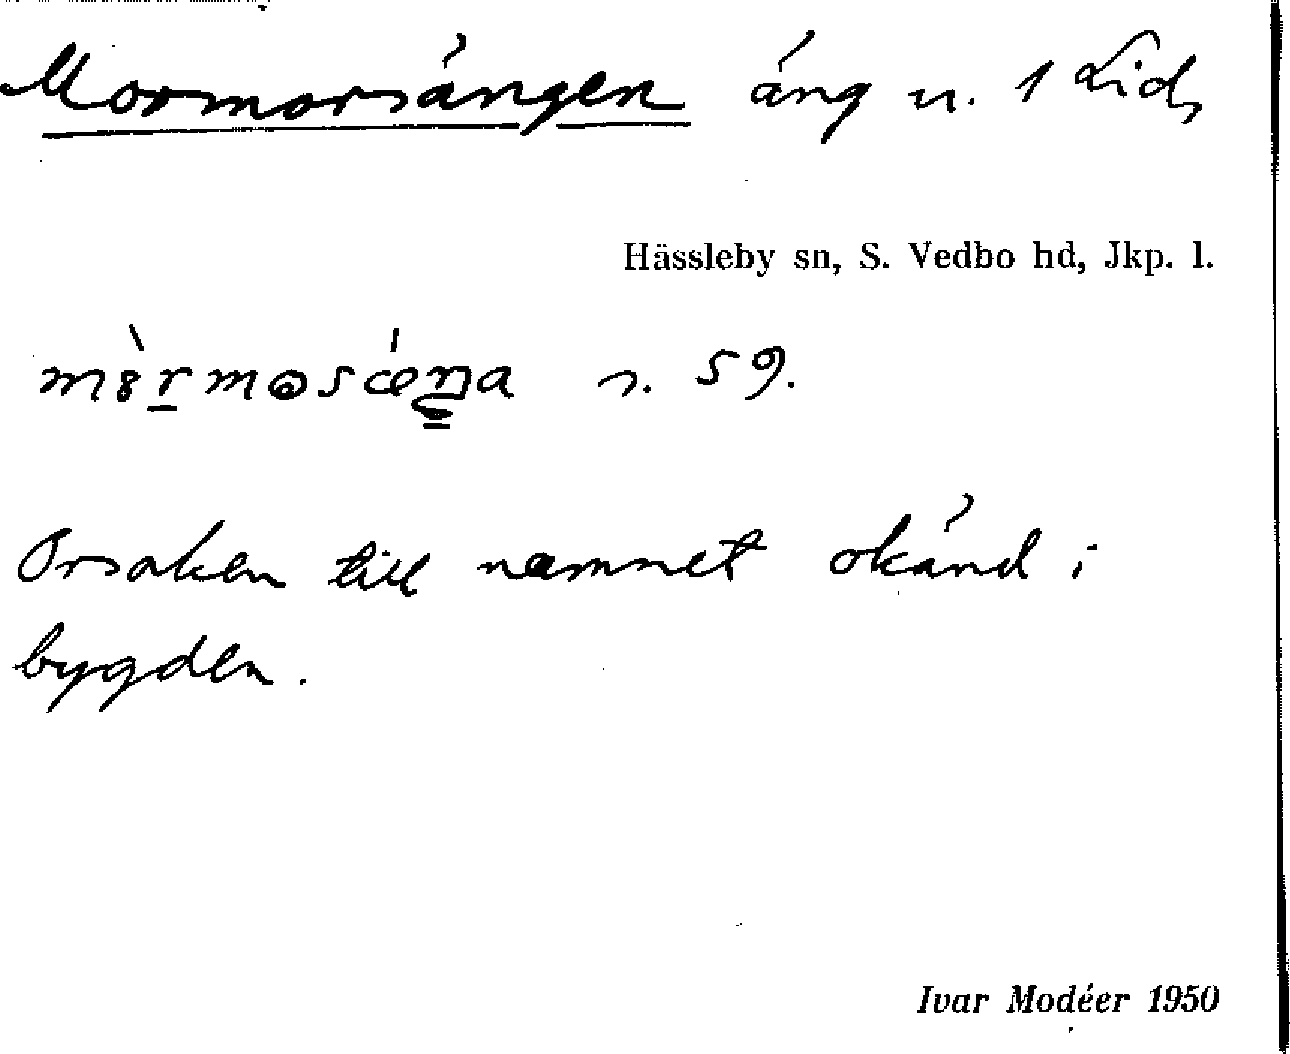 Mormorsängen äng u. 1 Lid,
Hässleby sn, S. Vedbo hd, Jkp. l.
s. 59.
Orsaken till namnet okänd i
bygden.
Ivar Modéer 1950